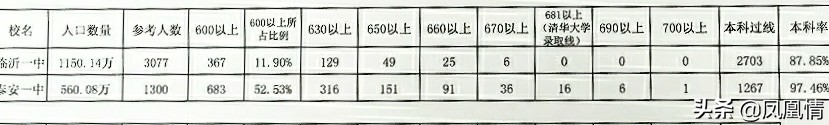 校名 人口数量 参考人数 600以上 600以上所占比例 630以上 650以上 660以上 670以上 681以上(清华大学录取线) 690以上 700以上 本科过线 本科率
临沂一中 1150.14万 3077 367 11.90% 129 49 25 6 0 0 0 2703 87.85%
泰安一中 560.08万 1300 683 52.53% 316 151 91 36 16 6 1 1267 97.46%
头条@凤凰情